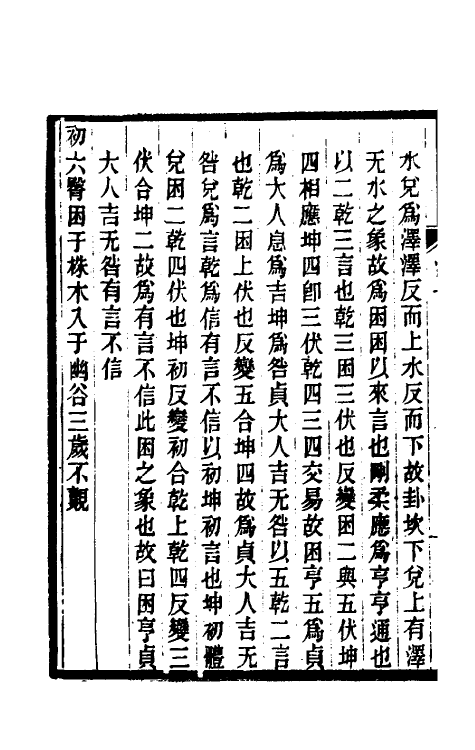 水兌爲澤澤反而上水反而下故卦坎下兌上有澤
无水之象故爲困困以來言也剛柔應爲亨亨通也
以二乾三言也乾三困三伏也反變困二與五伏坤
四相應坤四卽三伏乾四三四交易故困亨五爲貞
爲大人息爲吉坤爲咎貞大人吉无咎以五乾二言
也乾二困上伏也反變五合坤四故爲貞大人吉无
咎兌爲言乾爲信有言不信以初坤初言也坤初體
兌困二乾四伏也坤初反變初合乾上乾四反變三
伏合坤二故爲有言不信此困之象也故曰困亨貞
大人吉无咎有言不信
初六臀困于株木入于幽谷三歲不覿